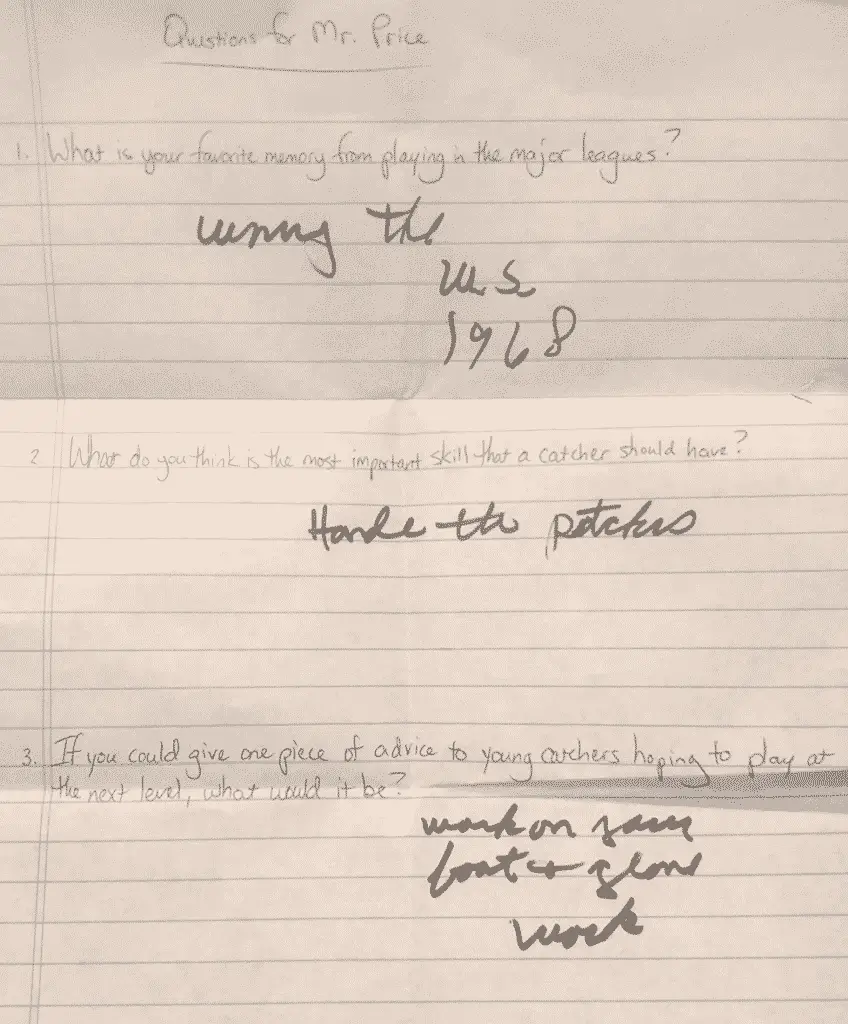 Questions for Mr. Price
1. What is your favorite memory from playing in the major leagues?
winning the
W.S.
1968
2 What do you think is the most important skill that a catcher should have?
Handle the pitchers
3. If you could give one piece of advice to young catchers hoping to play at
the next level, what would it be?
work on your
foot + glove
work